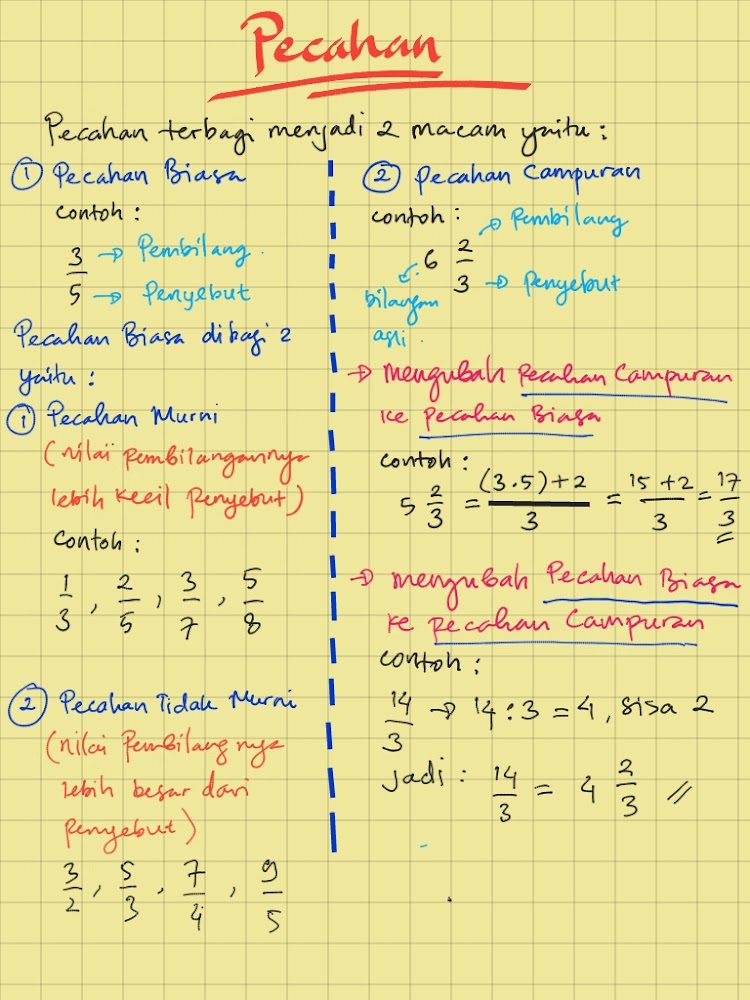 Pecahan
Pecahan terbagi menjadi 2 macam yaitu :
① Pecahan Biasa
contoh :
3/5 → Pembilang
→ Penyebut
Pecahan Biasa dibagi 2
yaitu :
① Pecahan Murni
(nilai pembilangannya
lebih kecil Penyebut)
Contoh :
1/3 , 2/5 , 3/7 , 5/8
② Pecahan Tidak Murni
(nilai Pembilangnya
lebih besar dari
Penyebut)
3/2 , 5/3 , 7/4 , 9/5
② Pecahan Campuran
contoh :
6 2/3 → Pembilang
→ Penyebut
bilangan
asli.
→ Mengubah Pecahan Campuran
ke Pecahan Biasa
contoh :
5 2/3 = (3.5)+2/3 = 15+2/3 = 17/3
→ Mengubah Pecahan Biasa
ke Pecahan Campuran
contoh :
14/3 → 14 : 3 = 4, sisa 2
Jadi : 14/3 = 4 2/3 //